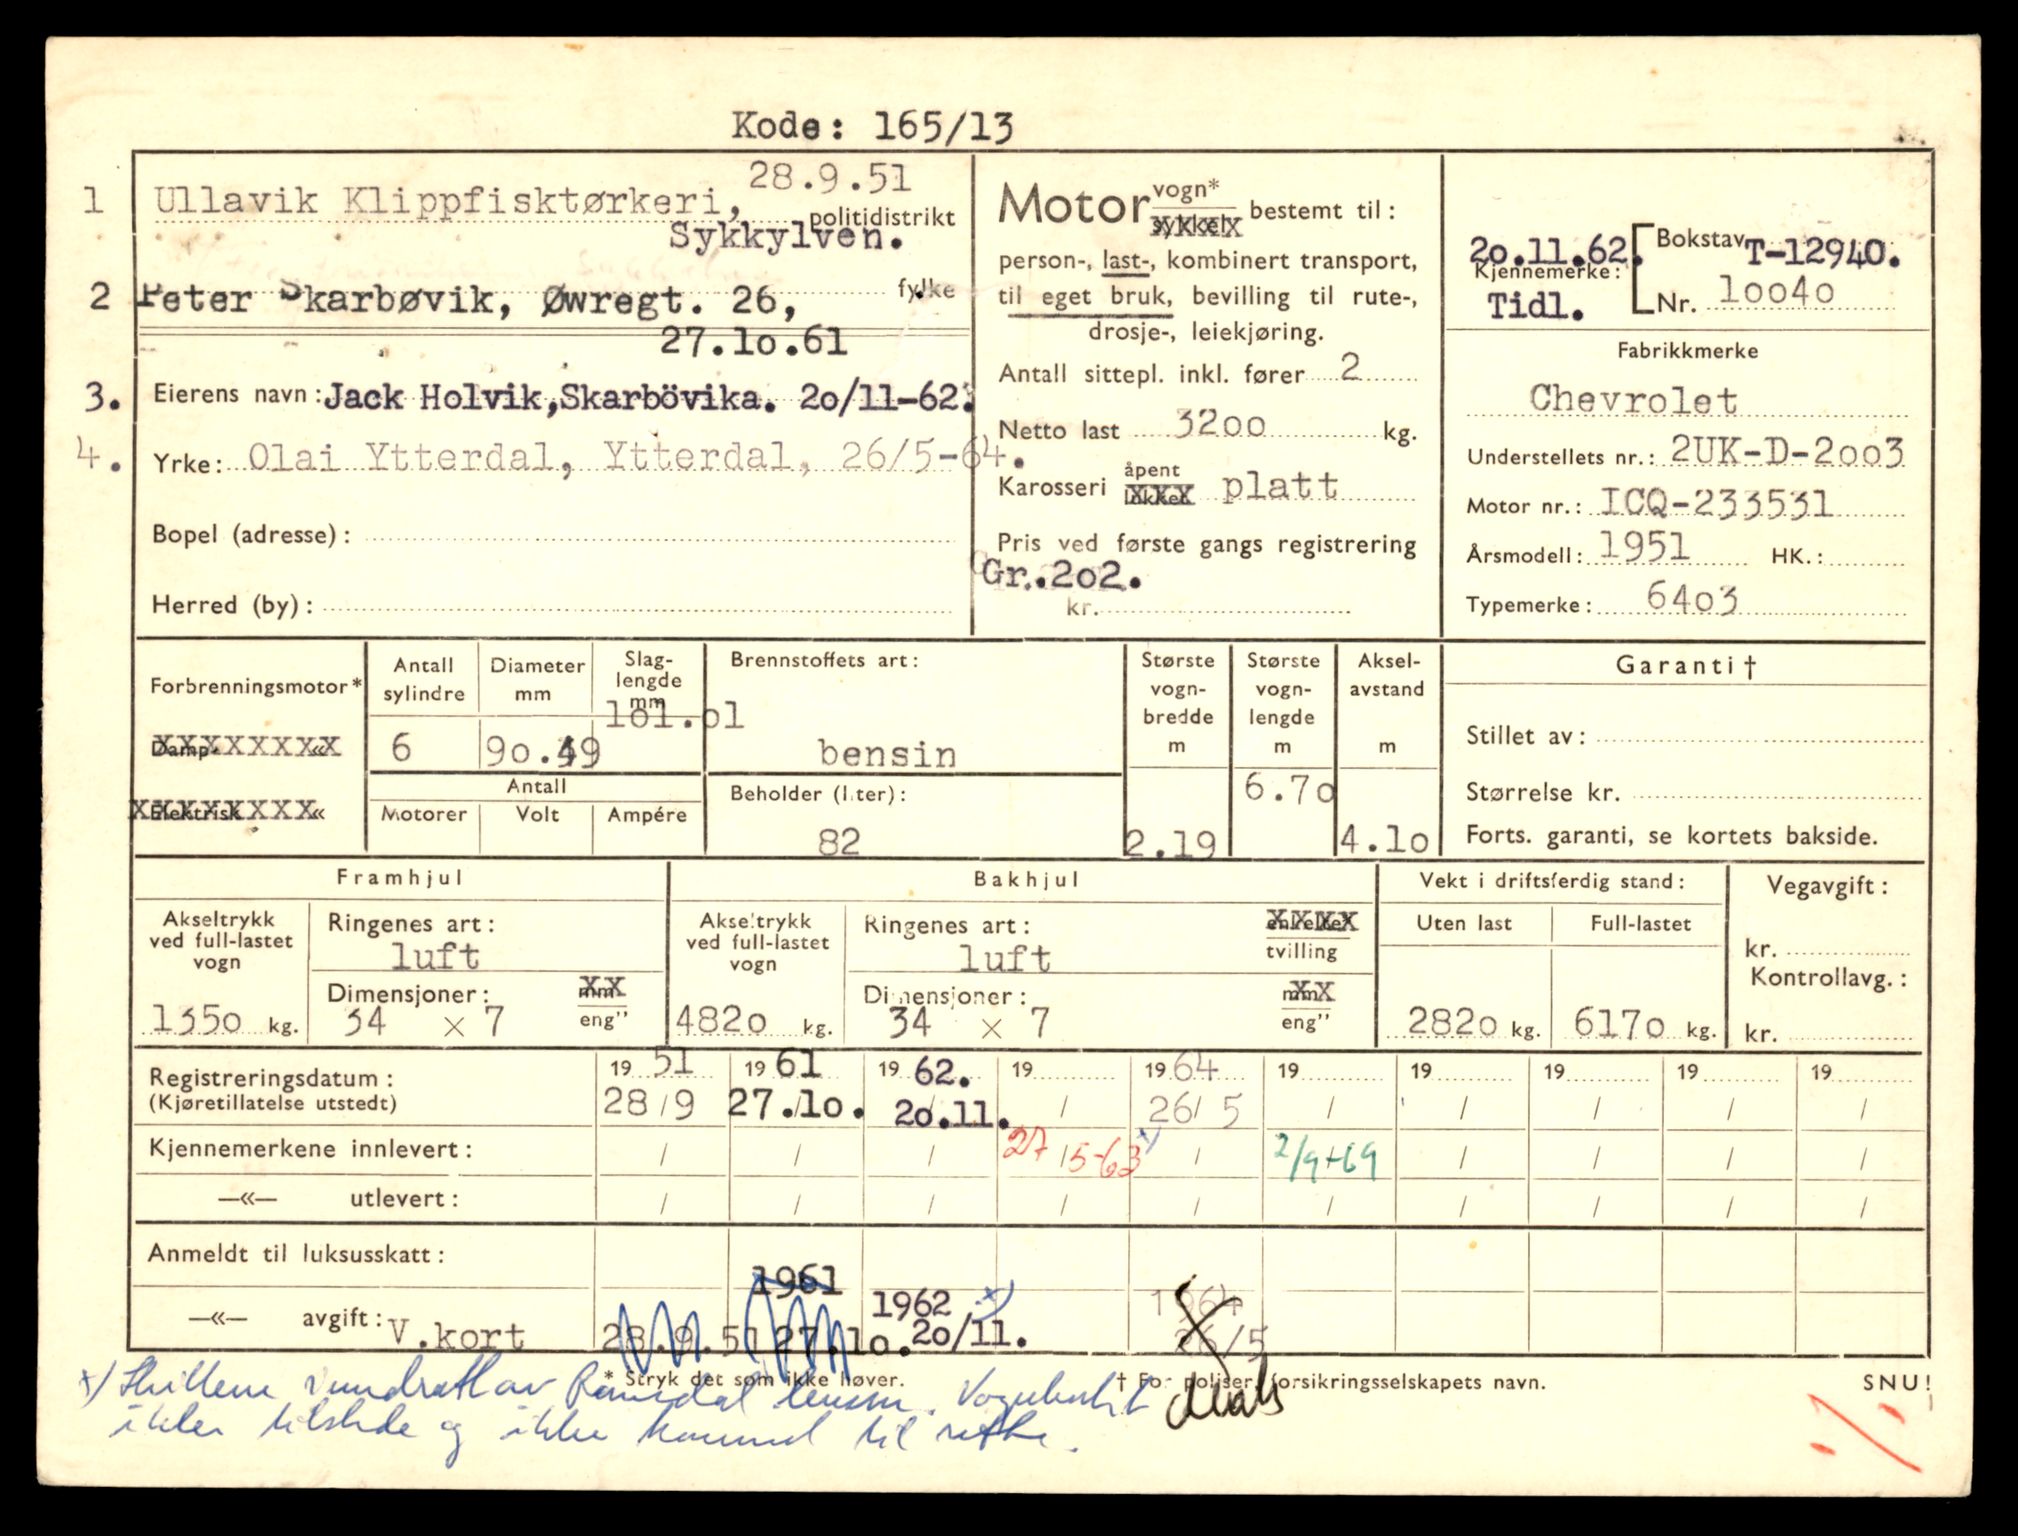 Kode: 165/13
1 Ullavik Klippfisktørkeri, 28.9.51
politidistrikt
Sykkylven.
2 Peter Skarbøvik, Øwregt. 26, fylke
27.10.61
3. Eierens navn: Jack Holvik, Skarbövika. 20/11-62.
4. Yrke: Olai Ytterdal, Ytterdal, 26/5-64.
Bopel (adresse):
Herred (by):
Motor vogn* sykkel bestemt til:
person-, last-, kombinert transport,
til eget bruk, bevilling til rute-,
drosje-, leiekjøring.
Antall sittepl. inkl. fører 2
Netto last 3200 kg.
Karosseri åpent lukket platt
Pris ved første gangs registrering
Gr.202.
kr.
20.11.62. Bokstav T-12940.
Kjennemerke:
Tidl. Nr. 10040
Fabrikkmerke
Chevrolet
Understellets nr.: 2UK-D-2003
Motor nr.: ICQ-233531
Årsmodell: 1951 HK.:
Typemerke: 6403
Forbrenningsmotor*
Damp- «
Elektrisk «
Antall sylindre
6
Diameter mm
90.49
Slag-lengde mm
101.01
Antall
Motorer Volt Ampére
Brennstoffets art:
bensin
Beholder (liter):
82
Største vogn-bredde m
2.19
Største vogn-lengde m
6.70
Aksel-avstand m
4.10
Garanti †
Stillet av:
Størrelse kr.
Forts. garanti, se kortets bakside.
Framhjul
Akseltrykk ved full-lastet vogn
1350 kg.
Ringenes art:
luft
Dimensjoner: mm
34 × 7 eng"
Bakhjul
Akseltrykk ved full-lastet vogn
4820 kg.
Ringenes art: enkelte
luft tvilling
Dimensjoner: mm
34 × 7 eng"
Vekt i driftsferdig stand:
Uten last Full-lastet
2820 kg. 6170 kg.
Vegavgift:
kr.
Kontrollavg.:
kr.
Registreringsdatum: 19 51 19 61 19 62. 19 19 64 19 19 19 19 19
(Kjøretillatelse utstedt) 28/9 27.10. 20.11. / 26/5 / / / / /
Kjennemerkene innlevert: / / / 27/5-63 x) / 2/9-69 / / / /
—«— utlevert: / / / / / / / / / /
Anmeldt til luksusskatt:
1961 1962 x) 1964
—«— avgift: V.kort 28.9.51 27.10. 20/11. 26/5
* Stryk det som ikke høver. † For poliser, forsikringsselskapets navn. SNU!
x) Skiltene inndratt av Romsdal lensm. Vognkortet
ikke tilstede og ikke kommet til rette.